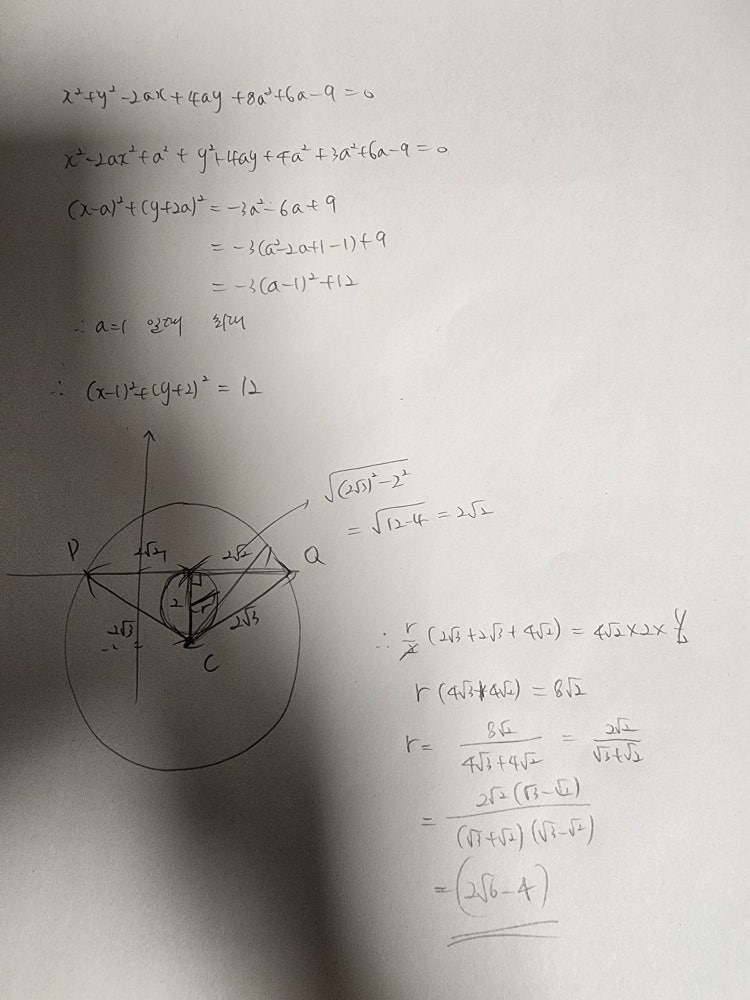 x²+y²-2ax+4ay+8a²+6a-9=0
x²-2ax²+a²+y²+4ay+4a²+3a²+6a-9=0
(x-a)²+(y+2a)²=-3a²-6a+9
=-3(a²-2a+1-1)+9
=-3(a-1)²+12
∴ a=1 일때 최대
∴ (x-1)²+(y+2)²=12
√((2√3)²-2²)
=√(12-4)=2√2
P 2√2 2√2 Q
2 r
2√3 2√3
-2
C
∴ r/2 (2√3+2√3+4√2)=4√2×2×1/2
r(4√3+4√2)=8√2
r= 8√2/(4√3+4√2) = 2√2/(√3+√2)
= 2√2(√3-√2)/((√3+√2)(√3-√2))
=(2√6-4)